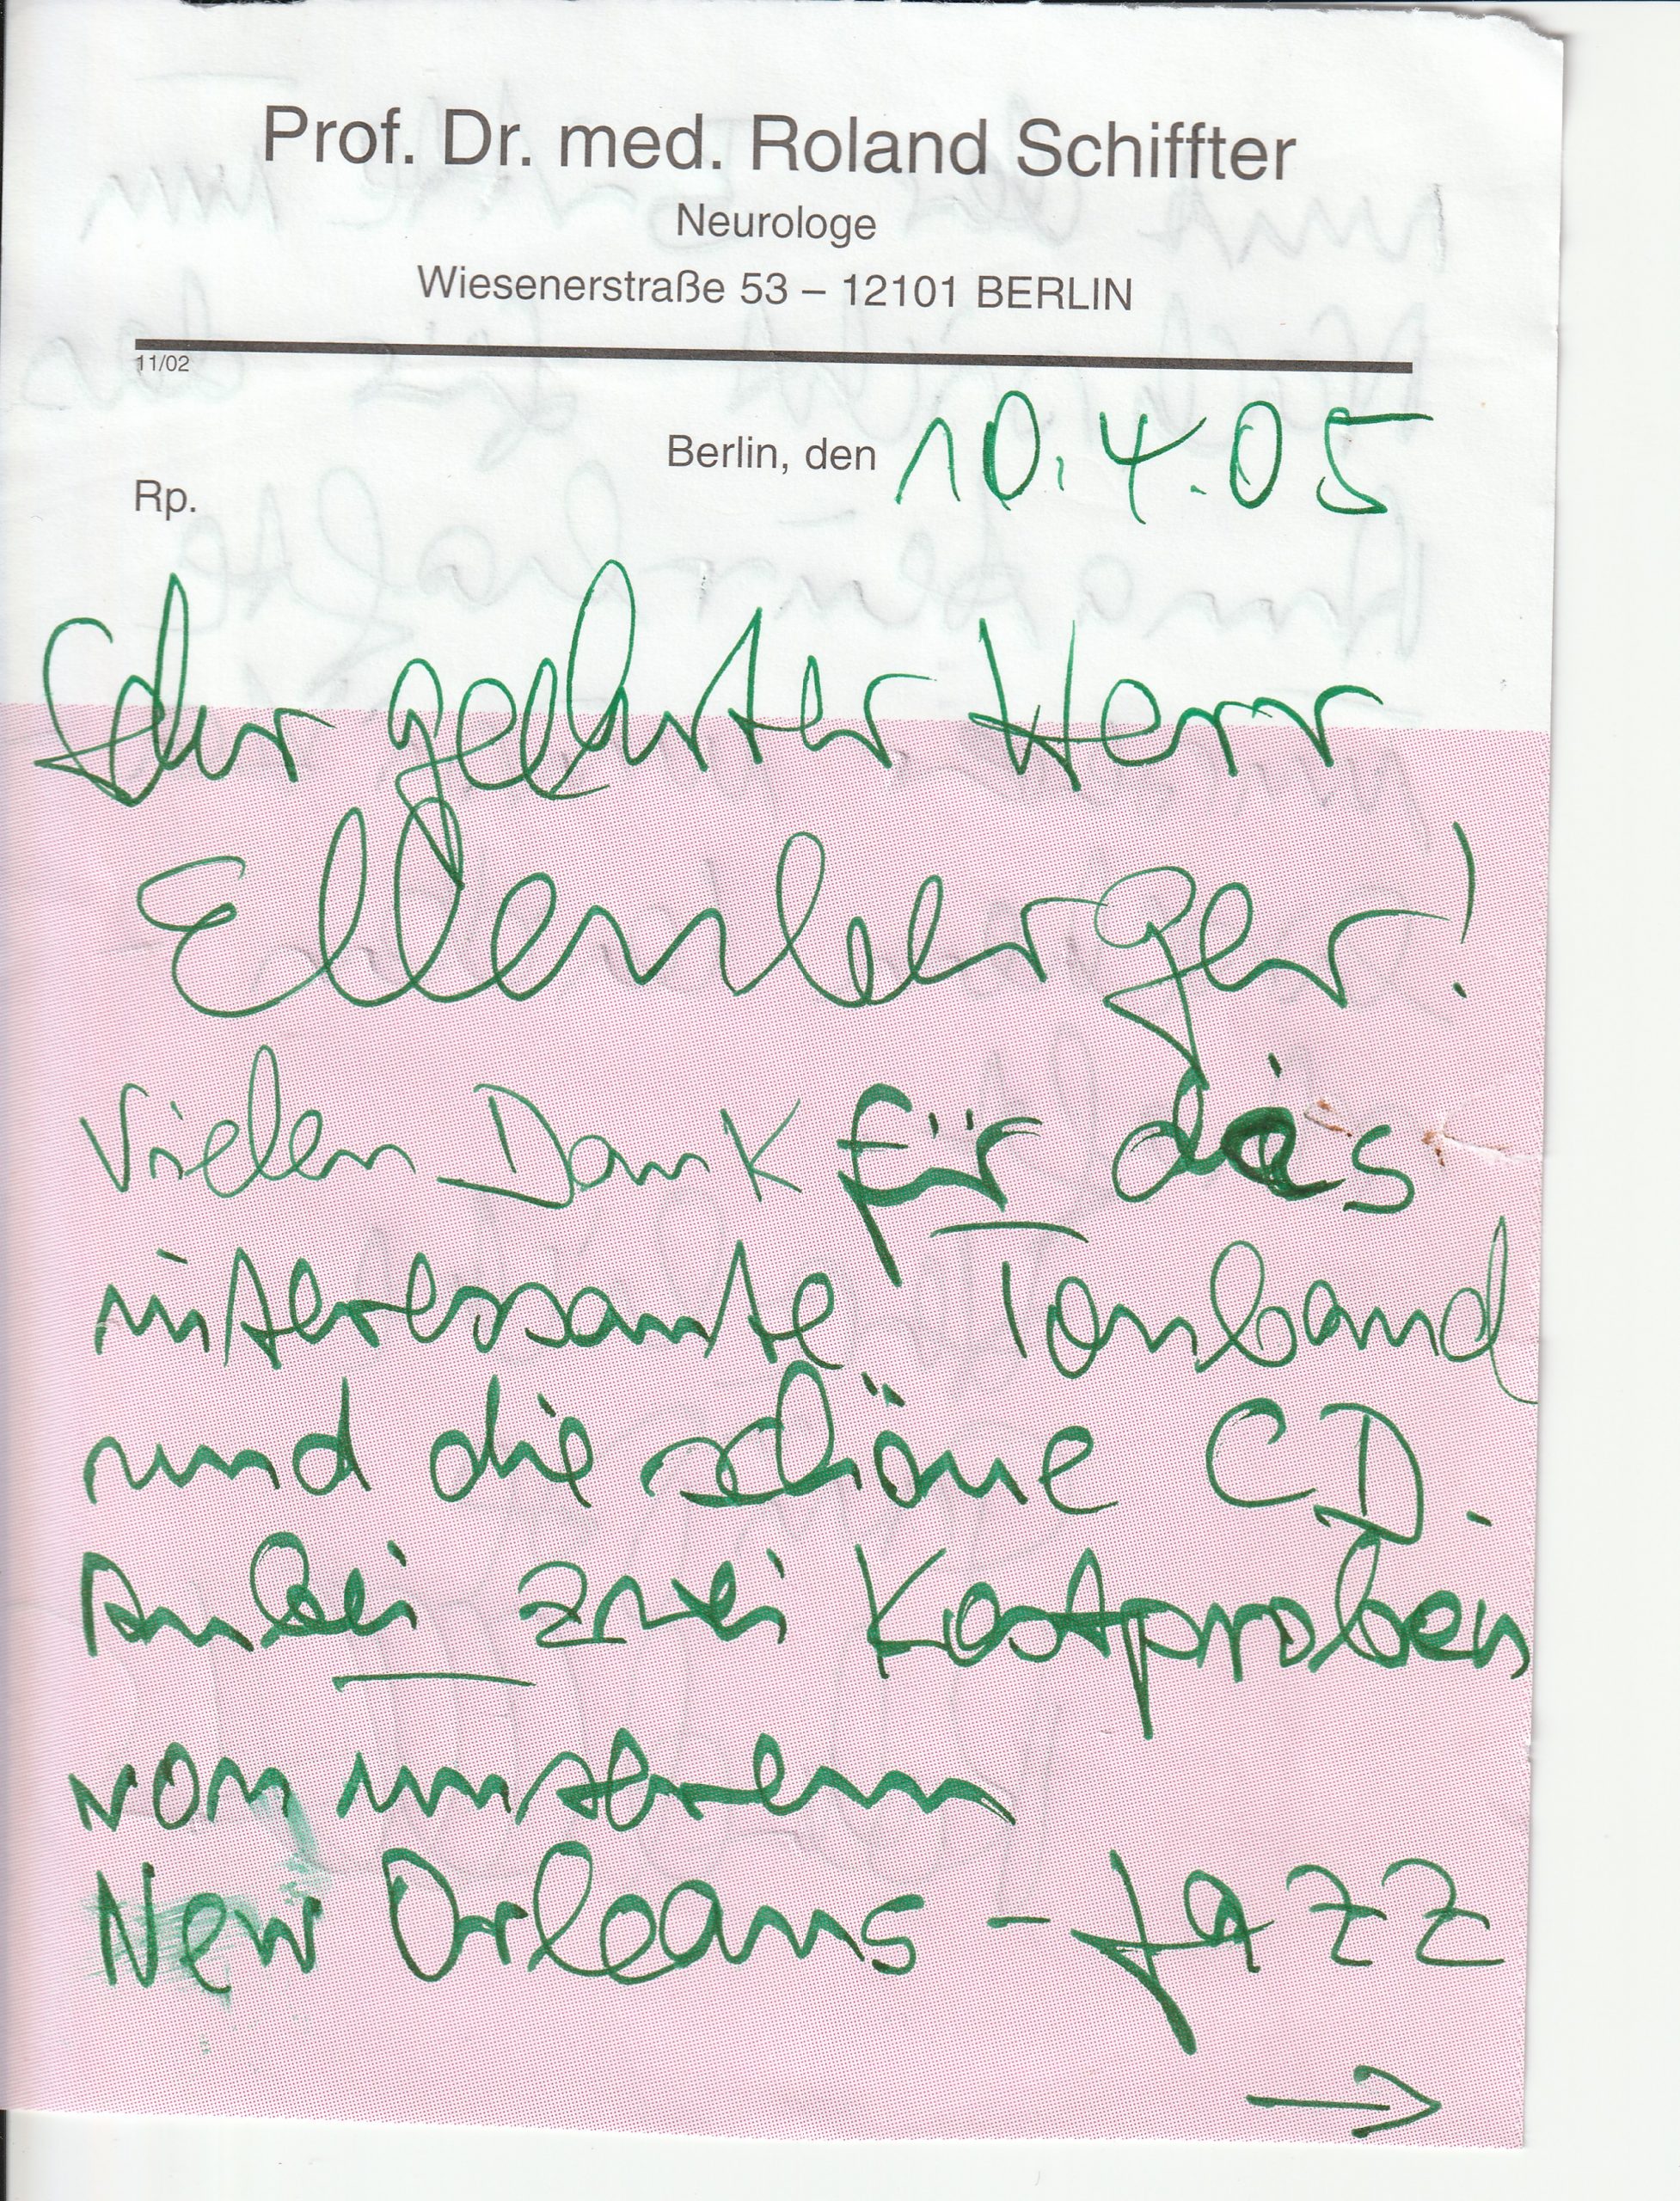 Prof. Dr. med. Roland Schiffter
Neurologe
Wiesenerstraße 53 – 12101 BERLIN
11/02
Berlin, den 10.4.05
Rp.
Sehr geehrter Herr
Ellenberger!
Vielen Dank für das
interessante Tonband
und die schöne CD.
Anbei zwei Kostproben
von unserem
New Orleans - Jazz
→